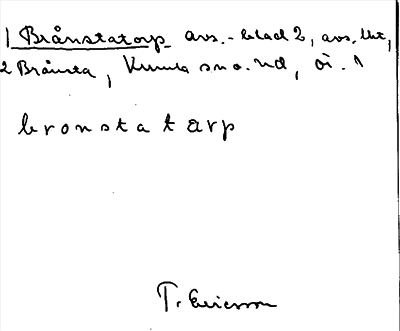 1 Brånstatorp avs.-blad 2, avs. Utt,
2 Brånsta, Kumla sn o. hd, Ör. 1
bronstatarp
T. Ericsson